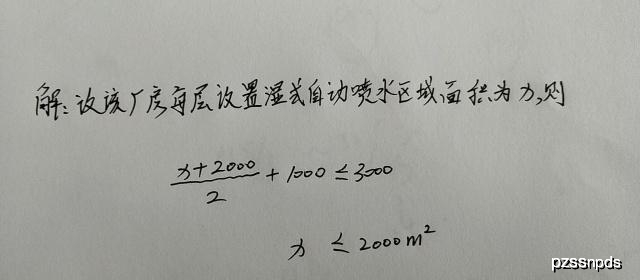 解:设该厂房每层设置湿式自动喷水区域面积为x,则
\frac{x+2000}{2} + 1000 ≤ 3000
x ≤ 2000m²
pzssnpds